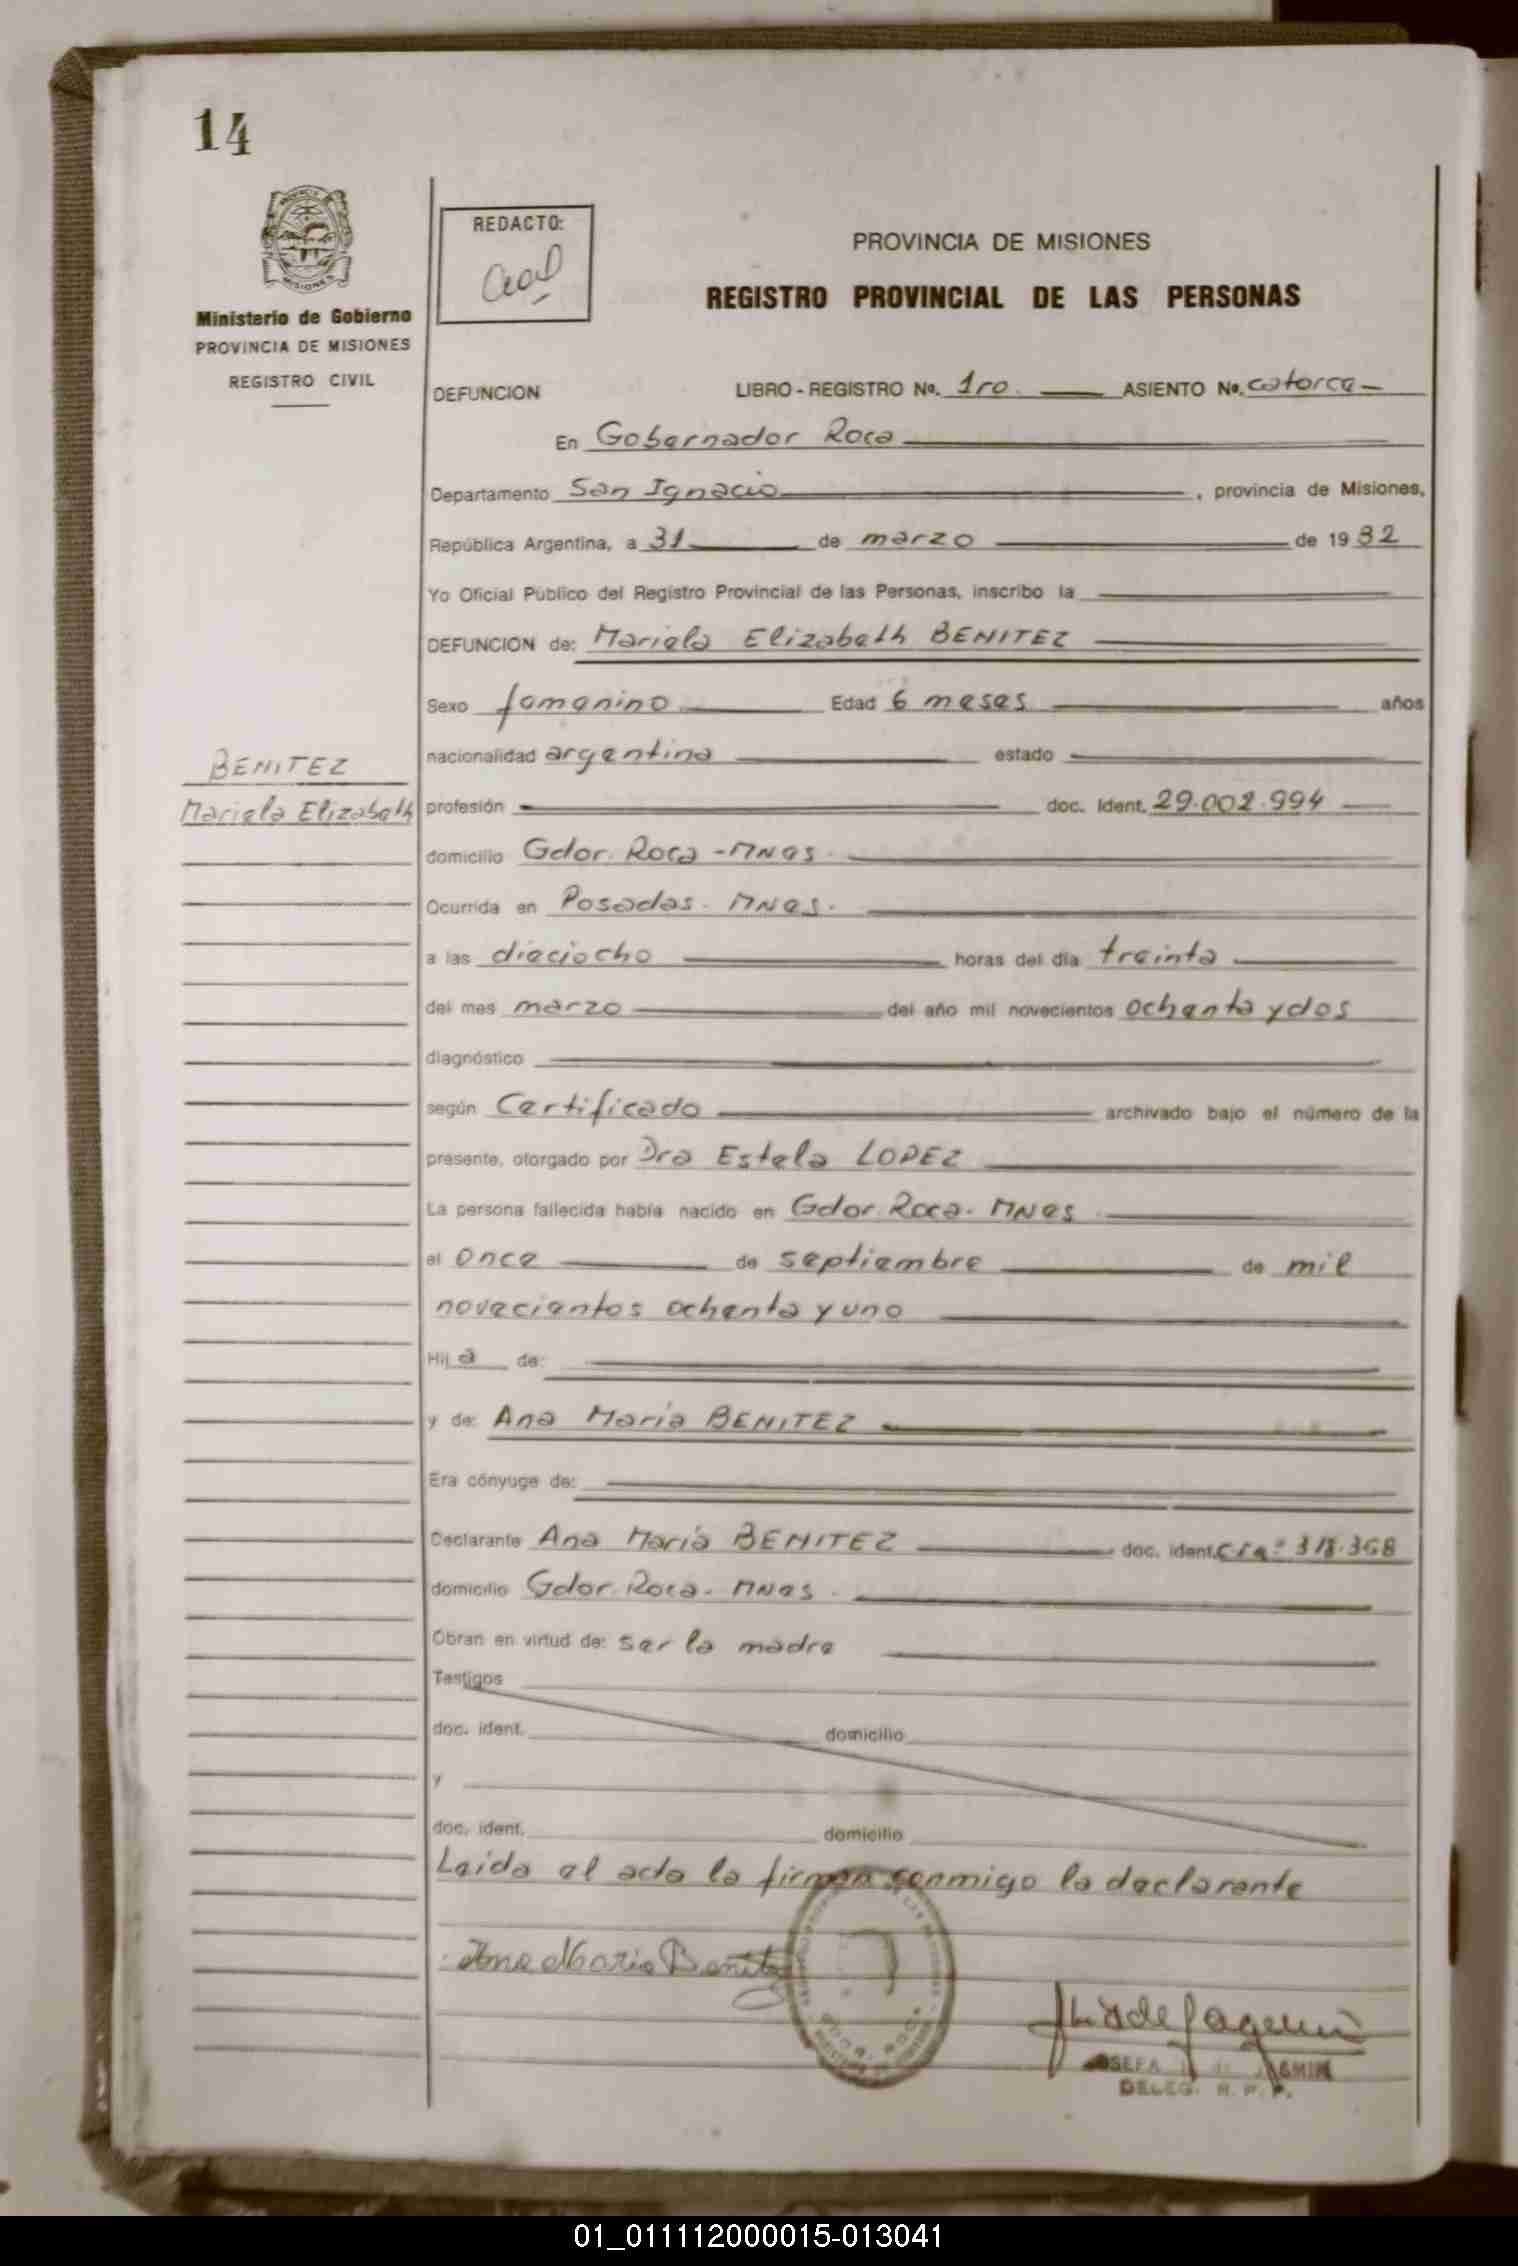 14
PROVINCIA DE
MISIONES
Ministerio de Gobierno
PROVINCIA DE MISIONES
REGISTRO CIVIL
REDACTO:
PROVINCIA DE MISIONES
REGISTRO PROVINCIAL DE LAS PERSONAS
DEFUNCION LIBRO - REGISTRO No. 1ro. ASIENTO No. catorce
En Gobernador Roca
Departamento San Ignacio , provincia de Misiones,
República Argentina, a 31 de marzo de 19 82
Yo Oficial Público del Registro Provincial de las Personas, inscribo la
DEFUNCION de: Mariela Elizabeth BENITEZ
Sexo femenino Edad 6 meses años
nacionalidad argentina estado
BENITEZ
Mariela Elizabeth
profesión doc. Ident. 29.002.994
domicilio Gdor. Roca - Mnes.
Ocurrida en Posadas. Mnes.
a las dieciocho horas del día treinta
del mes marzo del año mil novecientos ochenta y dos
diagnóstico
según Certificado archivado bajo el número de la
presente, otorgado por Dra Estela LOPEZ
La persona fallecida había nacido en Gdor. Roca. Mnes
el once de septiembre de mil
novecientos ochenta y uno
Hij a de:
y de: Ana María BENITEZ
Era cónyuge de:
Declarante Ana María BENITEZ doc. ident. 318.368
domicilio Gdor. Roca. Mnes.
Obran en virtud de: ser la madre
Testigos
doc. ident. domicilio
y
doc. ident. domicilio
Leida el acta la firman conmigo la declarante
Ana Maria Benitez
DELEG. R. P. P.
01_011112000015-013041